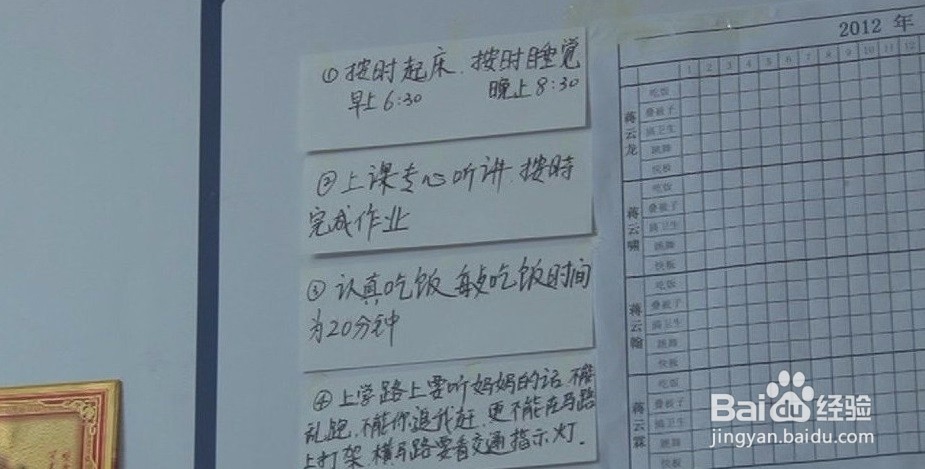 ①按时起床、按时睡觉
早上6:30 晚上8:30
②上课专心听讲.按时
完成作业
③认真吃饭 每頓吃饭时间
为20分钟
④上学路上要听妈妈的话 不能
乱跑,不能你追我赶.更不能在马路
上打架 横马路要看交通指示灯.
2012 年
1 2 3 4 5 6 7 8 9 10 11 12
蒋云龙
吃饭
叠被子
搞卫生
跳舞
快板
蒋云啸
吃饭
叠被子
搞卫生
跳舞
快板
蒋云翰
吃饭
叠被子
搞卫生
跳舞
快板
蒋云霖
吃饭
叠被子
搞卫生
跳舞
快板
Baidu经验
jingyan.baidu.com